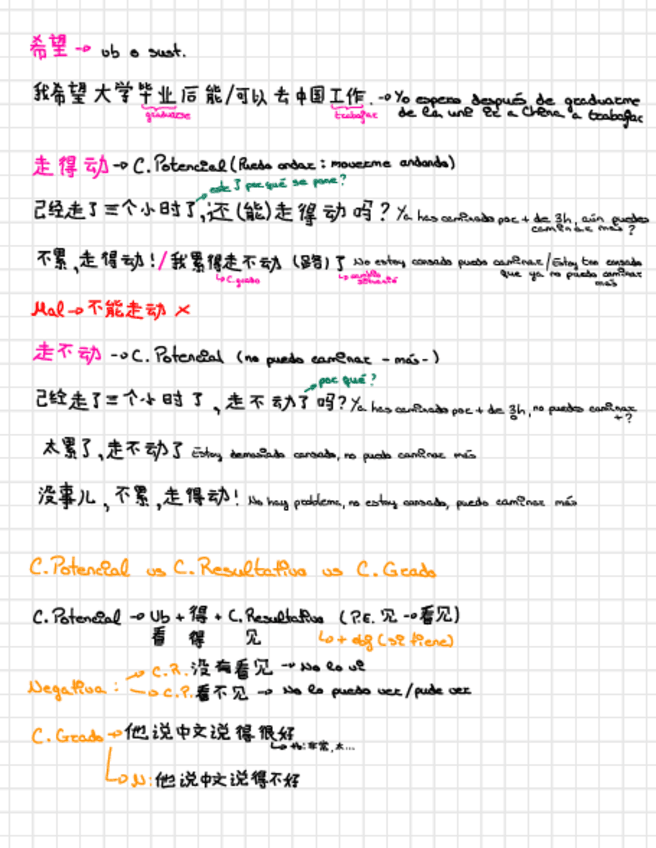 希望 → vb o sust.
我希望大学毕业后能/可以去中国工作. → Yo espero después de graduarme
graduarse trabajar de la uni ir a China a trabajar
走得动 → C. Potencial (Puedo andar: moverme andando)
este 了 por qué se pone?
已经走了三个小时了, 还(能)走得动吗? Ya has caminado por + de 3h, aún puedes
caminar más?
不累, 走得动! / 我累得走不动 (路) 了 No estoy cansado puedo caminar / Estoy tan cansado
C. grado cambio situació que ya no puedo caminar
más
Mal → 不能走动 ×
走不动 → C. Potencial (no puedo caminar -más-)
por qué?
已经走了三个小时了, 走不动了吗? Ya has caminado por + de 3h, no puedes caminar
+?
太累了, 走不动了 Estoy demasiado cansado, no puedo caminar más
没事儿, 不累, 走得动! No hay problema, no estoy cansado, puedo caminar más
C. Potencial vs C. Resultativo vs C. Grado
C. Potencial → Vb + 得 + C. Resultativo (P.E. 见 → 看见)
看 得 见 ↳ + obj (si tiene)
C.R. 没有看见 → No lo vi
Negativa:
C.P. 看不见 → No lo puedo ver/pude ver
C. Grado → 他说中文说得很好
↳ tb: 非常, 太...
↳ N: 他说中文说得不好